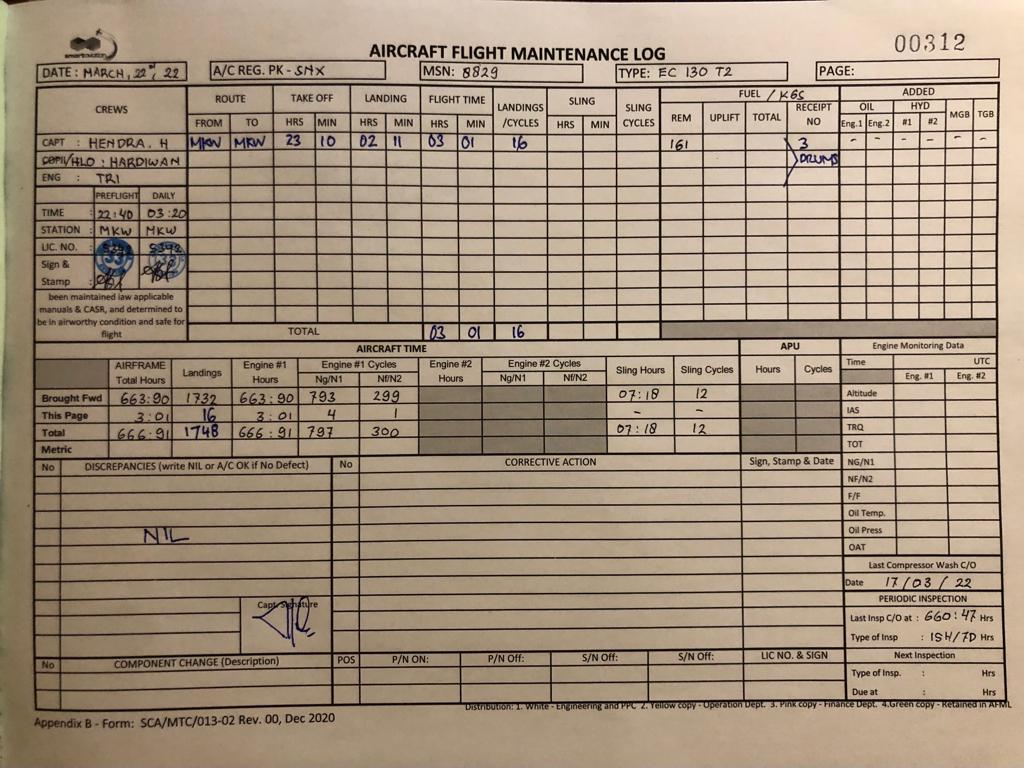 smartaviation
AIRCRAFT FLIGHT MAINTENANCE LOG
00312
DATE : MARCH, 22nd, 22 A/C REG. PK - SNX MSN: 8829 TYPE: EC 130 T2 PAGE:
CREWS ROUTE TAKE OFF LANDING FLIGHT TIME LANDINGS /CYCLES SLING SLING CYCLES FUEL / KGS ADDED
OIL HYD MGB TGB
FROM TO HRS MIN HRS MIN HRS MIN HRS MIN REM UPLIFT TOTAL RECEIPT NO Eng.1 Eng.2 #1 #2
CAPT : HENDRA. H MKW MKW 23 10 02 11 03 01 16 161 3 - - - - - -
COPIL/HLO : HARDIWAN DRUMS
ENG : TRI
PREFLIGHT DAILY
TIME : 22:40 03:20
STATION : MKW MKW
LIC. NO. :
Sign & Stamp : 33 33
been maintained iaw applicable
manuals & CASR, and determined to
be in airworthy condition and safe for
flight
TOTAL 03 01 16
AIRCRAFT TIME APU Engine Monitoring Data
AIRFRAME Total Hours Landings Engine #1 Hours Engine #1 Cycles Engine #2 Hours Engine #2 Cycles Sling Hours Sling Cycles Hours Cycles Time UTC
Ng/N1 Nf/N2 Ng/N1 Nf/N2 Eng. #1 Eng. #2
Brought Fwd 663:90 1732 663:90 793 299 07:18 12 Altitude
This Page 3:01 16 3:01 4 1 - - IAS
Total 666:91 1748 666:91 797 300 07:18 12 TRQ
Metric TOT
No DISCREPANCIES (write NIL or A/C OK if No Defect) No CORRECTIVE ACTION Sign, Stamp & Date NG/N1
NF/N2
F/F
Oil Temp.
NIL Oil Press
OAT
Last Compressor Wash C/O
Date 17/03/22
PERIODIC INSPECTION
Capt. Signature Last Insp C/O at : 660:47 Hrs
Type of Insp : 15H/7D Hrs
No COMPONENT CHANGE (Description) POS P/N ON: P/N Off: S/N Off: S/N Off: LIC NO. & SIGN Next Inspection
Type of Insp. : Hrs
Due at : Hrs
Distribution: 1. White - Engineering and PPC 2. Yellow copy - Operation Dept. 3. Pink copy - Finance Dept. 4.Green copy - Retained in AFML
Appendix B - Form: SCA/MTC/013-02 Rev. 00, Dec 2020